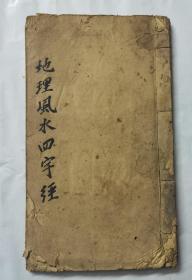 地理風水四字經